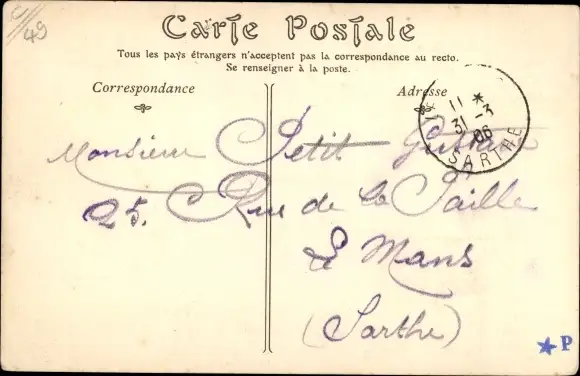 49
Carte Postale
Tous les pays étrangers n'acceptent pas la correspondance au recto.
Se renseigner à la poste.
Correspondance
Adresse
11 *
31 -3
06
SARTHE
Monsieur Petit Gustave
25. Rue de la Paille
Le Mans
(Sarthe)
★ P